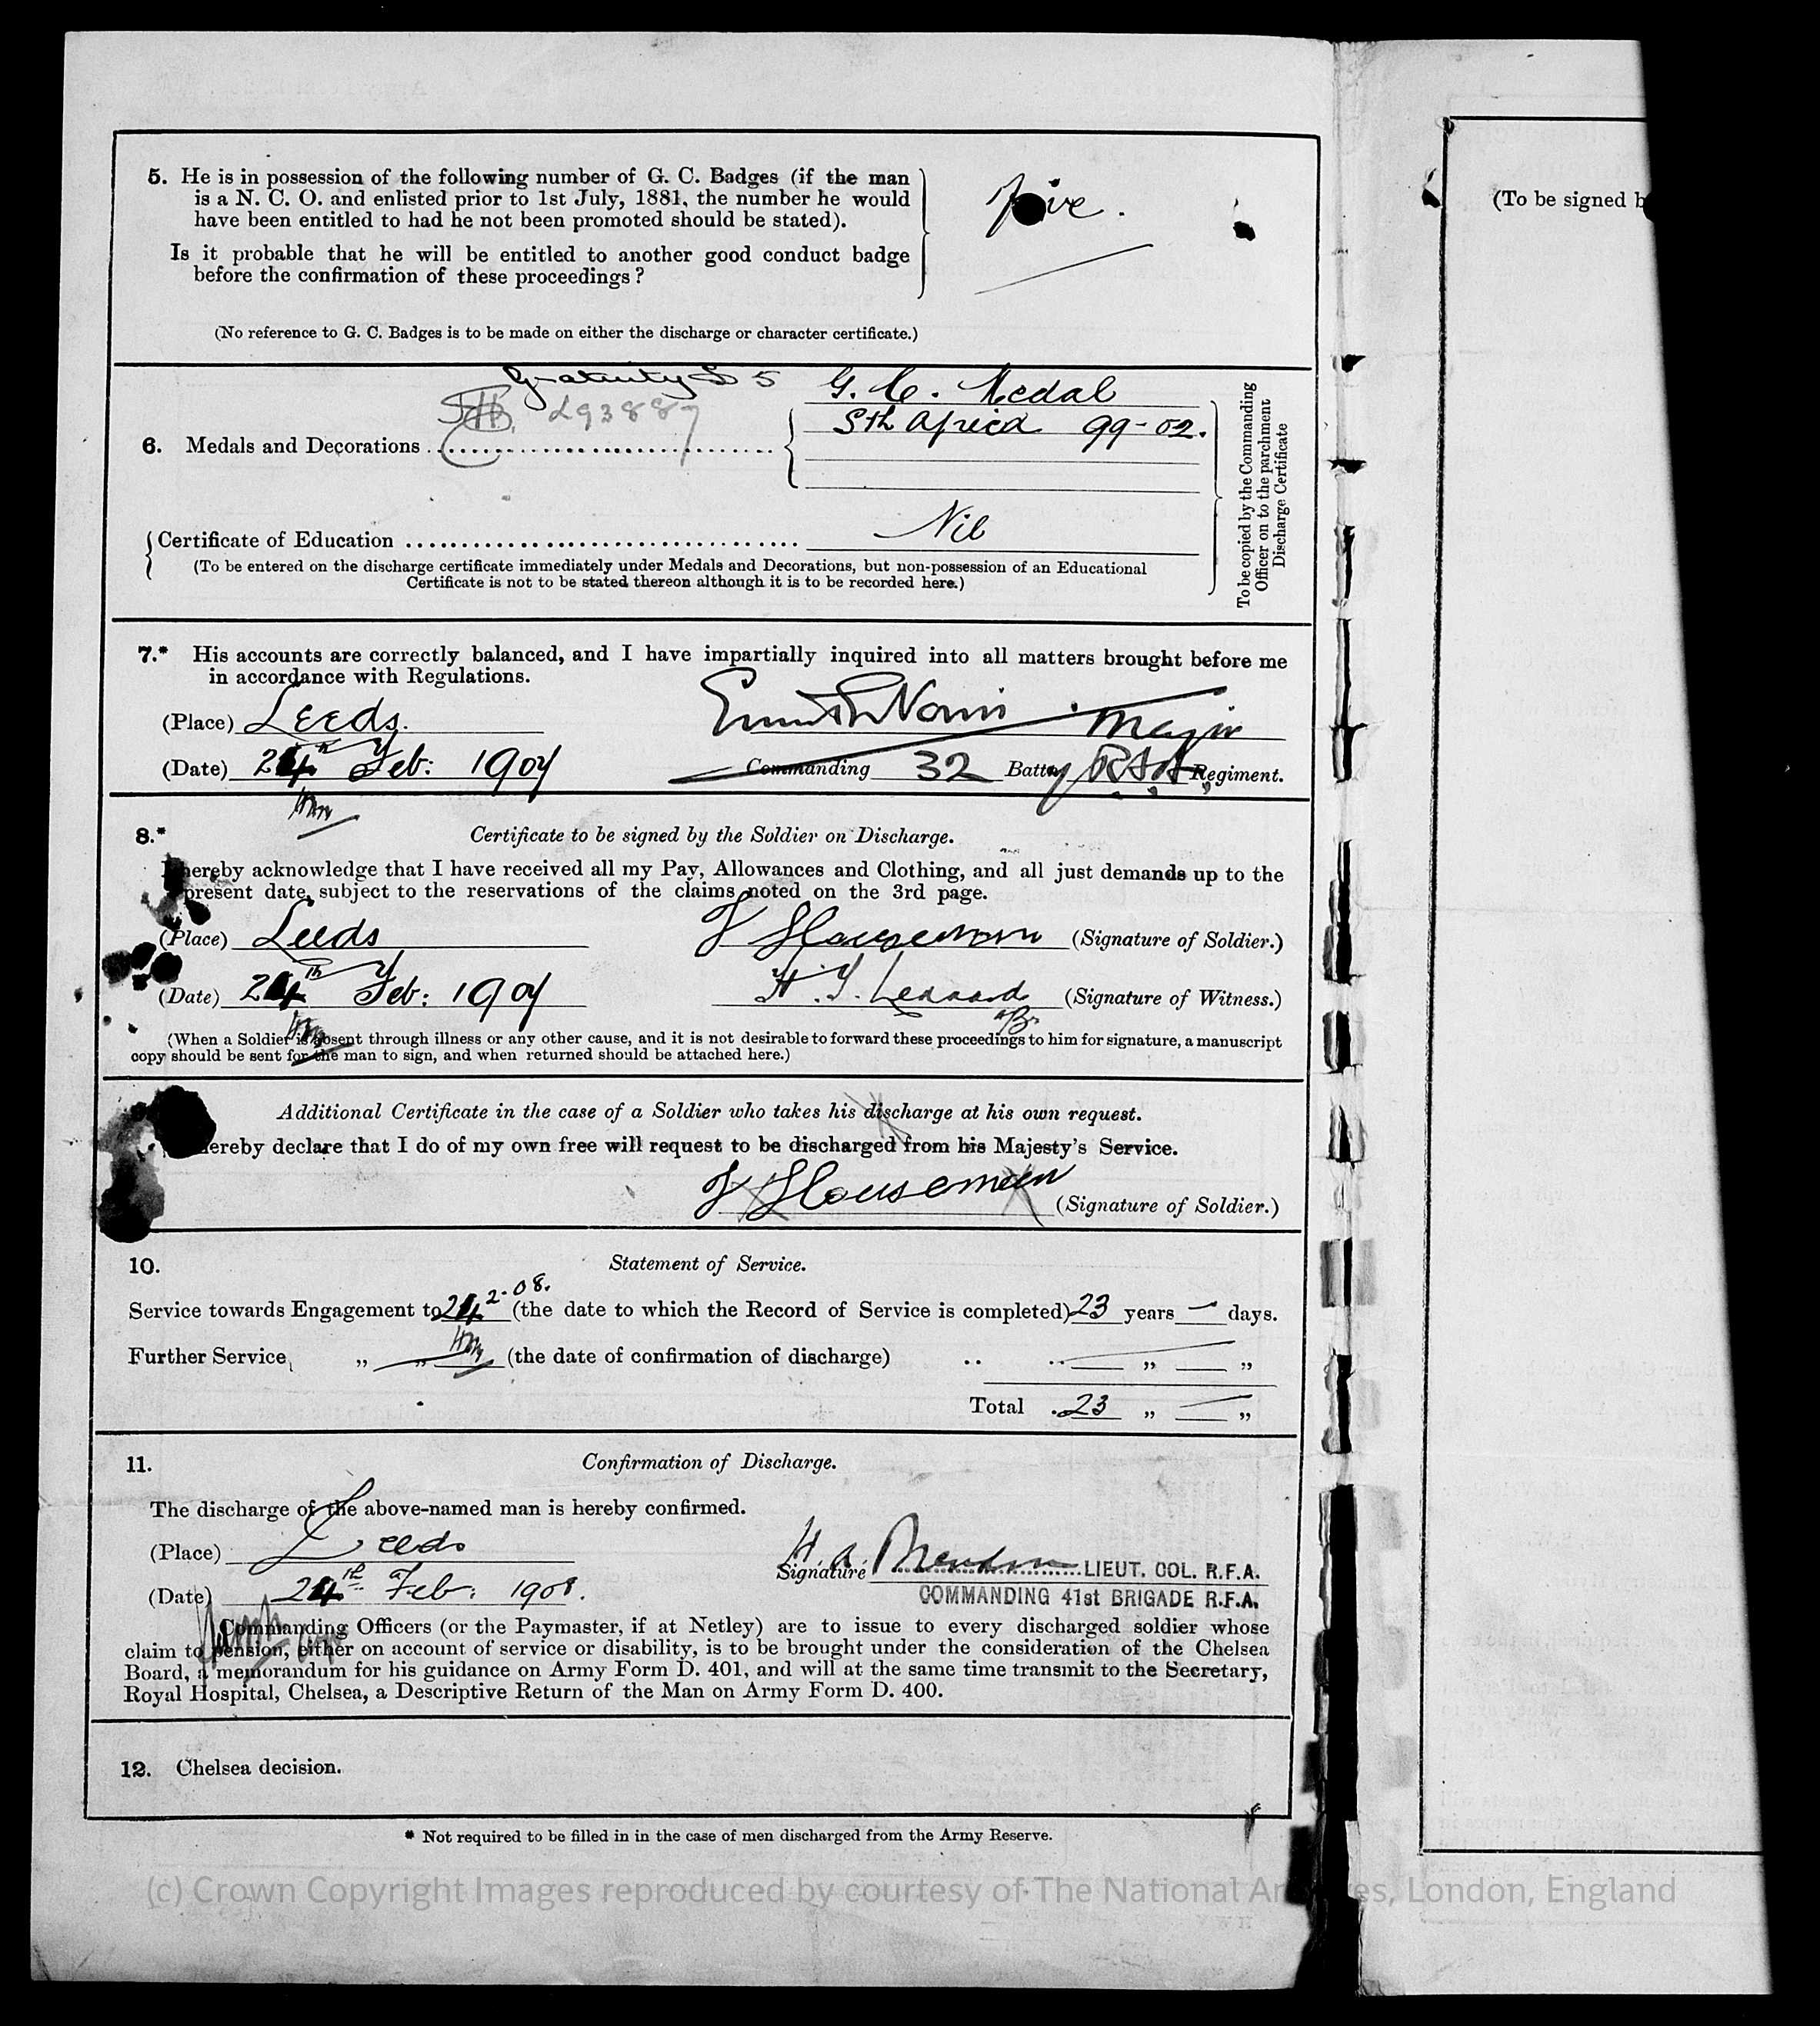 5. He is in possession of the following number of G. C. Badges (if the man
is a N. C. O. and enlisted prior to 1st July, 1881, the number he would
have been entitled to had he not been promoted should be stated).
Five.
Is it probable that he will be entitled to another good conduct badge
before the confirmation of these proceedings?
(No reference to G. C. Badges is to be made on either the discharge or character certificate.)
Gratuity £5
G. C. Medal
Sth Africa 99-02.
6. Medals and Decorations
Certificate of Education
Nil
(To be entered on the discharge certificate immediately under Medals and Decorations, but non-possession of an Educational
Certificate is not to be stated thereon although it is to be recorded here.)
To be copied by the Commanding
Officer on to the parchment
Discharge Certificate
7.* His accounts are correctly balanced, and I have impartially inquired into all matters brought before me
in accordance with Regulations.
(Place) Leeds.
Major
(Date) 24th Feb: 190
Commanding 32 Batty R.F.A. Regiment.
8.* Certificate to be signed by the Soldier on Discharge.
I hereby acknowledge that I have received all my Pay, Allowances and Clothing, and all just demands up to the
present date, subject to the reservations of the claims noted on the 3rd page.
(Place) Leeds
(Signature of Soldier.)
(Date) 24th Feb: 190
H. Leonard (Signature of Witness.)
(When a Soldier is absent through illness or any other cause, and it is not desirable to forward these proceedings to him for signature, a manuscript
copy should be sent for the man to sign, and when returned should be attached here.)
Additional Certificate in the case of a Soldier who takes his discharge at his own request.
hereby declare that I do of my own free will request to be discharged from his Majesty's Service.
Houseman (Signature of Soldier.)
10. Statement of Service.
Service towards Engagement to 24 2-08. (the date to which the Record of Service is completed) 23 years — days.
Further Service, „ „ (the date of confirmation of discharge) .. .. „ „
Total 23 „ „
11. Confirmation of Discharge.
The discharge of the above-named man is hereby confirmed.
(Place) Leeds
Signature H. A. LIEUT. COL. R.F.A.
(Date) 24th Feb: 1908.
COMMANDING 41st BRIGADE R.F.A.
Commanding Officers (or the Paymaster, if at Netley) are to issue to every discharged soldier whose
claim to pension, either on account of service or disability, is to be brought under the consideration of the Chelsea
Board, a memorandum for his guidance on Army Form D. 401, and will at the same time transmit to the Secretary,
Royal Hospital, Chelsea, a Descriptive Return of the Man on Army Form D. 400.
12. Chelsea decision.
* Not required to be filled in in the case of men discharged from the Army Reserve.
(To be signed b
(c) Crown Copyright Images reproduced by courtesy of The National Archives, London, England